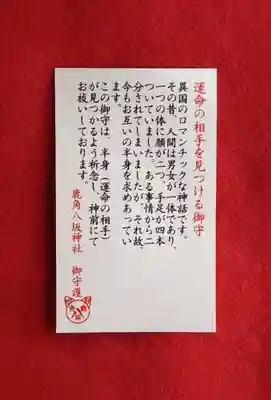 運命の相手を見つける御守
異国のロマンチックな神話です。
その昔、人間は男女が一体であり、
一つの体に顔が二つ、手足が四本
ついていました。ある事情から二
分されてしまいましたが、それ故、
今もお互いの半身を求めあってい
ます。
この御守は、半身(運命の相手)
が見つかるよう祈念し、神前にて
お祓いしております。
鹿角八坂神社 御守護